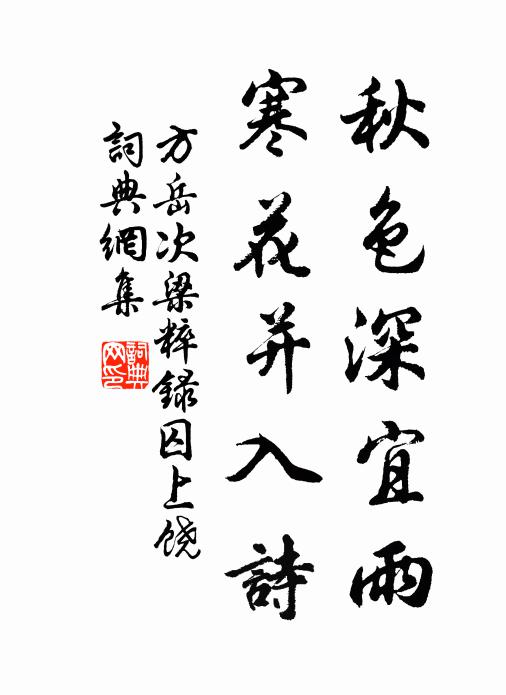 秋色深宜雨
寒花并入詩
方岳次梁粹録囚上饶
詞典網集
詞典网印